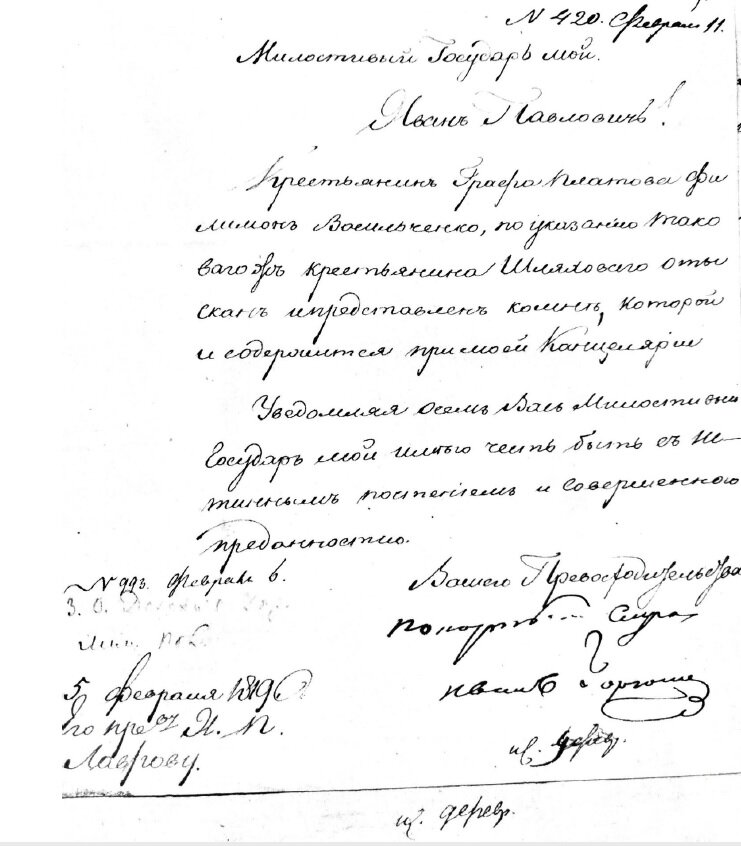 N 420. Февраля 11.
Милостивый Государь мой.
Иванъ Павловичъ!
Крестьянинъ Графа Платова Фи
лимонъ Васильченко, по указанию тако
ваго жъ крестьянина Шляховаго оты
сканъ и представленъ комнѣ, которой
и содержится при моей Канцелярiи
Уведомляя осемъ Васъ Милостивый
Государь мой имѣю честь быть съ ис-
тиннымъ почтенiемъ и совершенною
преданностию.
Вашего Превосходительства
N 993. Февраля 6.
покорнѣ... слуга
Иванъ
5 февраля 1819
Его прево
И. П.
Лаврову.